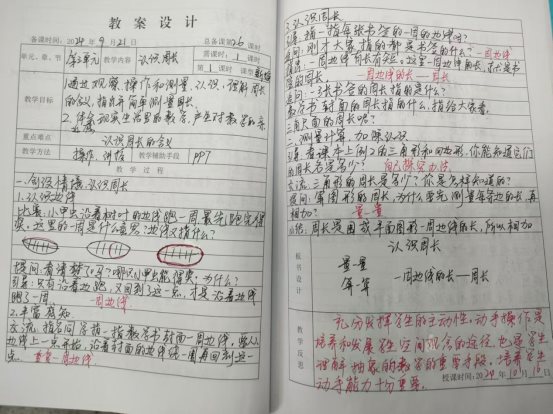 教案设计
备课时间：2024年9月21日 总备课第26课时
单元、章、节 第三单元 教学内容 认识周长 需课时：1课时
第1课时 课型 新授
教学目标
1.通过观察、操作和测量，认识、理解周长
的含义，指并简单测量周长
2.体会现实生活里的数学，产生对数学的亲
近感
重点难点 认识周长的含义
教学方法 操作、讲授 教学辅助手段 PPT
教学过程
一、创设情境，认识周长
1.认识边线
比赛：小甲虫沿着树叶的边线跑一周，最先跑完得
奖，这里的一周是什么意思？边线又指什么？
提问：看清楚了吗？哪只小甲虫能得奖，为什么？
引导：只有沿着边线跑，又回到了这一点，才是沿着边线
跑了一周 一周边线
2.丰富感知
交流：指名同学指一指数学书封面一周边线，要从
边线上一点开始，沿着封面的边线绕一周再回到这一
点。 指一指一周边线
3.认识周长
引导：指一指每张书签的一周的边线吗？
提问：刚才大家指的都是书签的什么？一周边线
边线的长就是书
签的周长。 一周边线的长——周长
提问：3张书签的周长指的是什么？
数学书封面的周长指的什么，指给大家看
三角尺面的周长呢？
二、测量计算，加深认识
引导：看课本上例2的三角形和四边形，你能知道它们
的周长是多少？ 自主探究办法
交流：三角形的周长是多少？你是怎样知道的？
提问：求图形的周长，为什么要先测量每条边的长，再
相加？ 量一量
小结：周长是围成平面图形一周边线的长，所以相加
板书设计
认识周长
量一量
算一算 一周边线的长——周长
教学反思
充分发挥学生的主动性，动手操作是
培养和发展学生空间观念的途径，也是学生
理解抽象的数学的重要手段，培养学生
动手能力十分重要。
授课时间：2024年10月16日